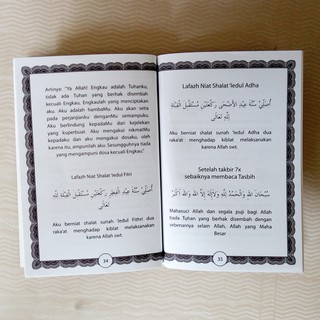 Artinya: "Ya Allah! Engkau adalah Tuhanku,
tidak ada Tuhan yang berhak disembah
kecuali Engkau. Engkaulah yang menciptakan
aku. Aku adalah hambaMu. Aku akan setia
pada perjanjianku denganMu semampuku.
Aku berlindung kepadaMu dari kejelekan
yang kuperbuat. Aku mengakui nikmatMu
kepadaku dan aku mengakui dosaku, oleh
karena itu, ampunilah aku. Sesungguhnya tiada
yang mengampuni dosa kecuali Engkau."
Lafazh Niat Shalat 'Iedul Fitri
أُصَلِّيْ سُنَّةَ عِيْدِ الْفِطْرِ رَكْعَتَيْنِ مُسْتَقْبِلَ الْقِبْلَةِ لِلّٰهِ
تَعَالَى
Aku berniat shalat sunah 'Iedul Fithri dua
raka'at menghadap kiblat melaksanakan
karena Allah swt.
34
Lafazh Niat Shalat 'Iedul Adha
أُصَلِّيْ سُنَّةَ عِيْدِ الْأَضْحَى رَكْعَتَيْنِ مُسْتَقْبِلَ الْقِبْلَةِ
لِلّٰهِ تَعَالَى
Aku berniat shalat sunah 'Iedul Adha dua
raka'at menghadap kiblat melaksanakan
karena Allah swt.
Setelah takbir 7x
sebaiknya membaca Tasbih
سُبْحَانَ اللهِ وَالْحَمْدُ لِلّٰهِ وَلَا إِلٰهَ إِلَّا اللهُ وَاللهُ أَكْبَرُ
Mahasuci Allah dan segala puji bagi Allah
tiada Tuhan yang berhak disembah dengan
sebenarnya selain Allah, Allah yang Maha
Besar
35